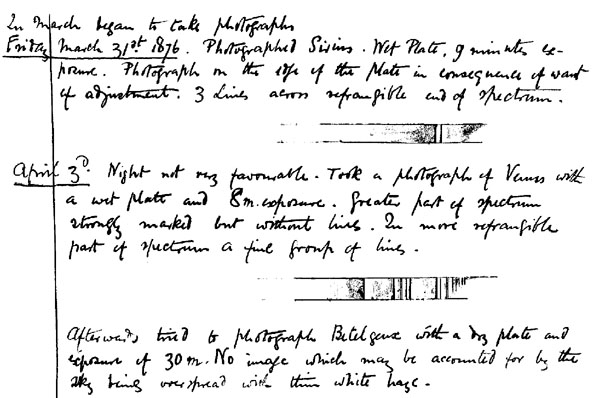 In March began to take photographs
Friday March 31st 1876. Photographed Sirius. Wet Plate, 9 minutes ex-
posure. Photograph on the edge of the plate in consequence of want
of adjustment. 3 Lines across refrangible end of spectrum.
April 3d. Night not very favourable. Took a photograph of Venus with
a wet plate and 8m. exposure. Greater part of spectrum
strongly marked but without lines. In more refrangible
part of spectrum a fine group of lines.
Afterwards tried to photograph Betelgeux with a dry plate and
exposure of 30 m. No image which may be accounted for by the
sky being overspread with thin white haze.